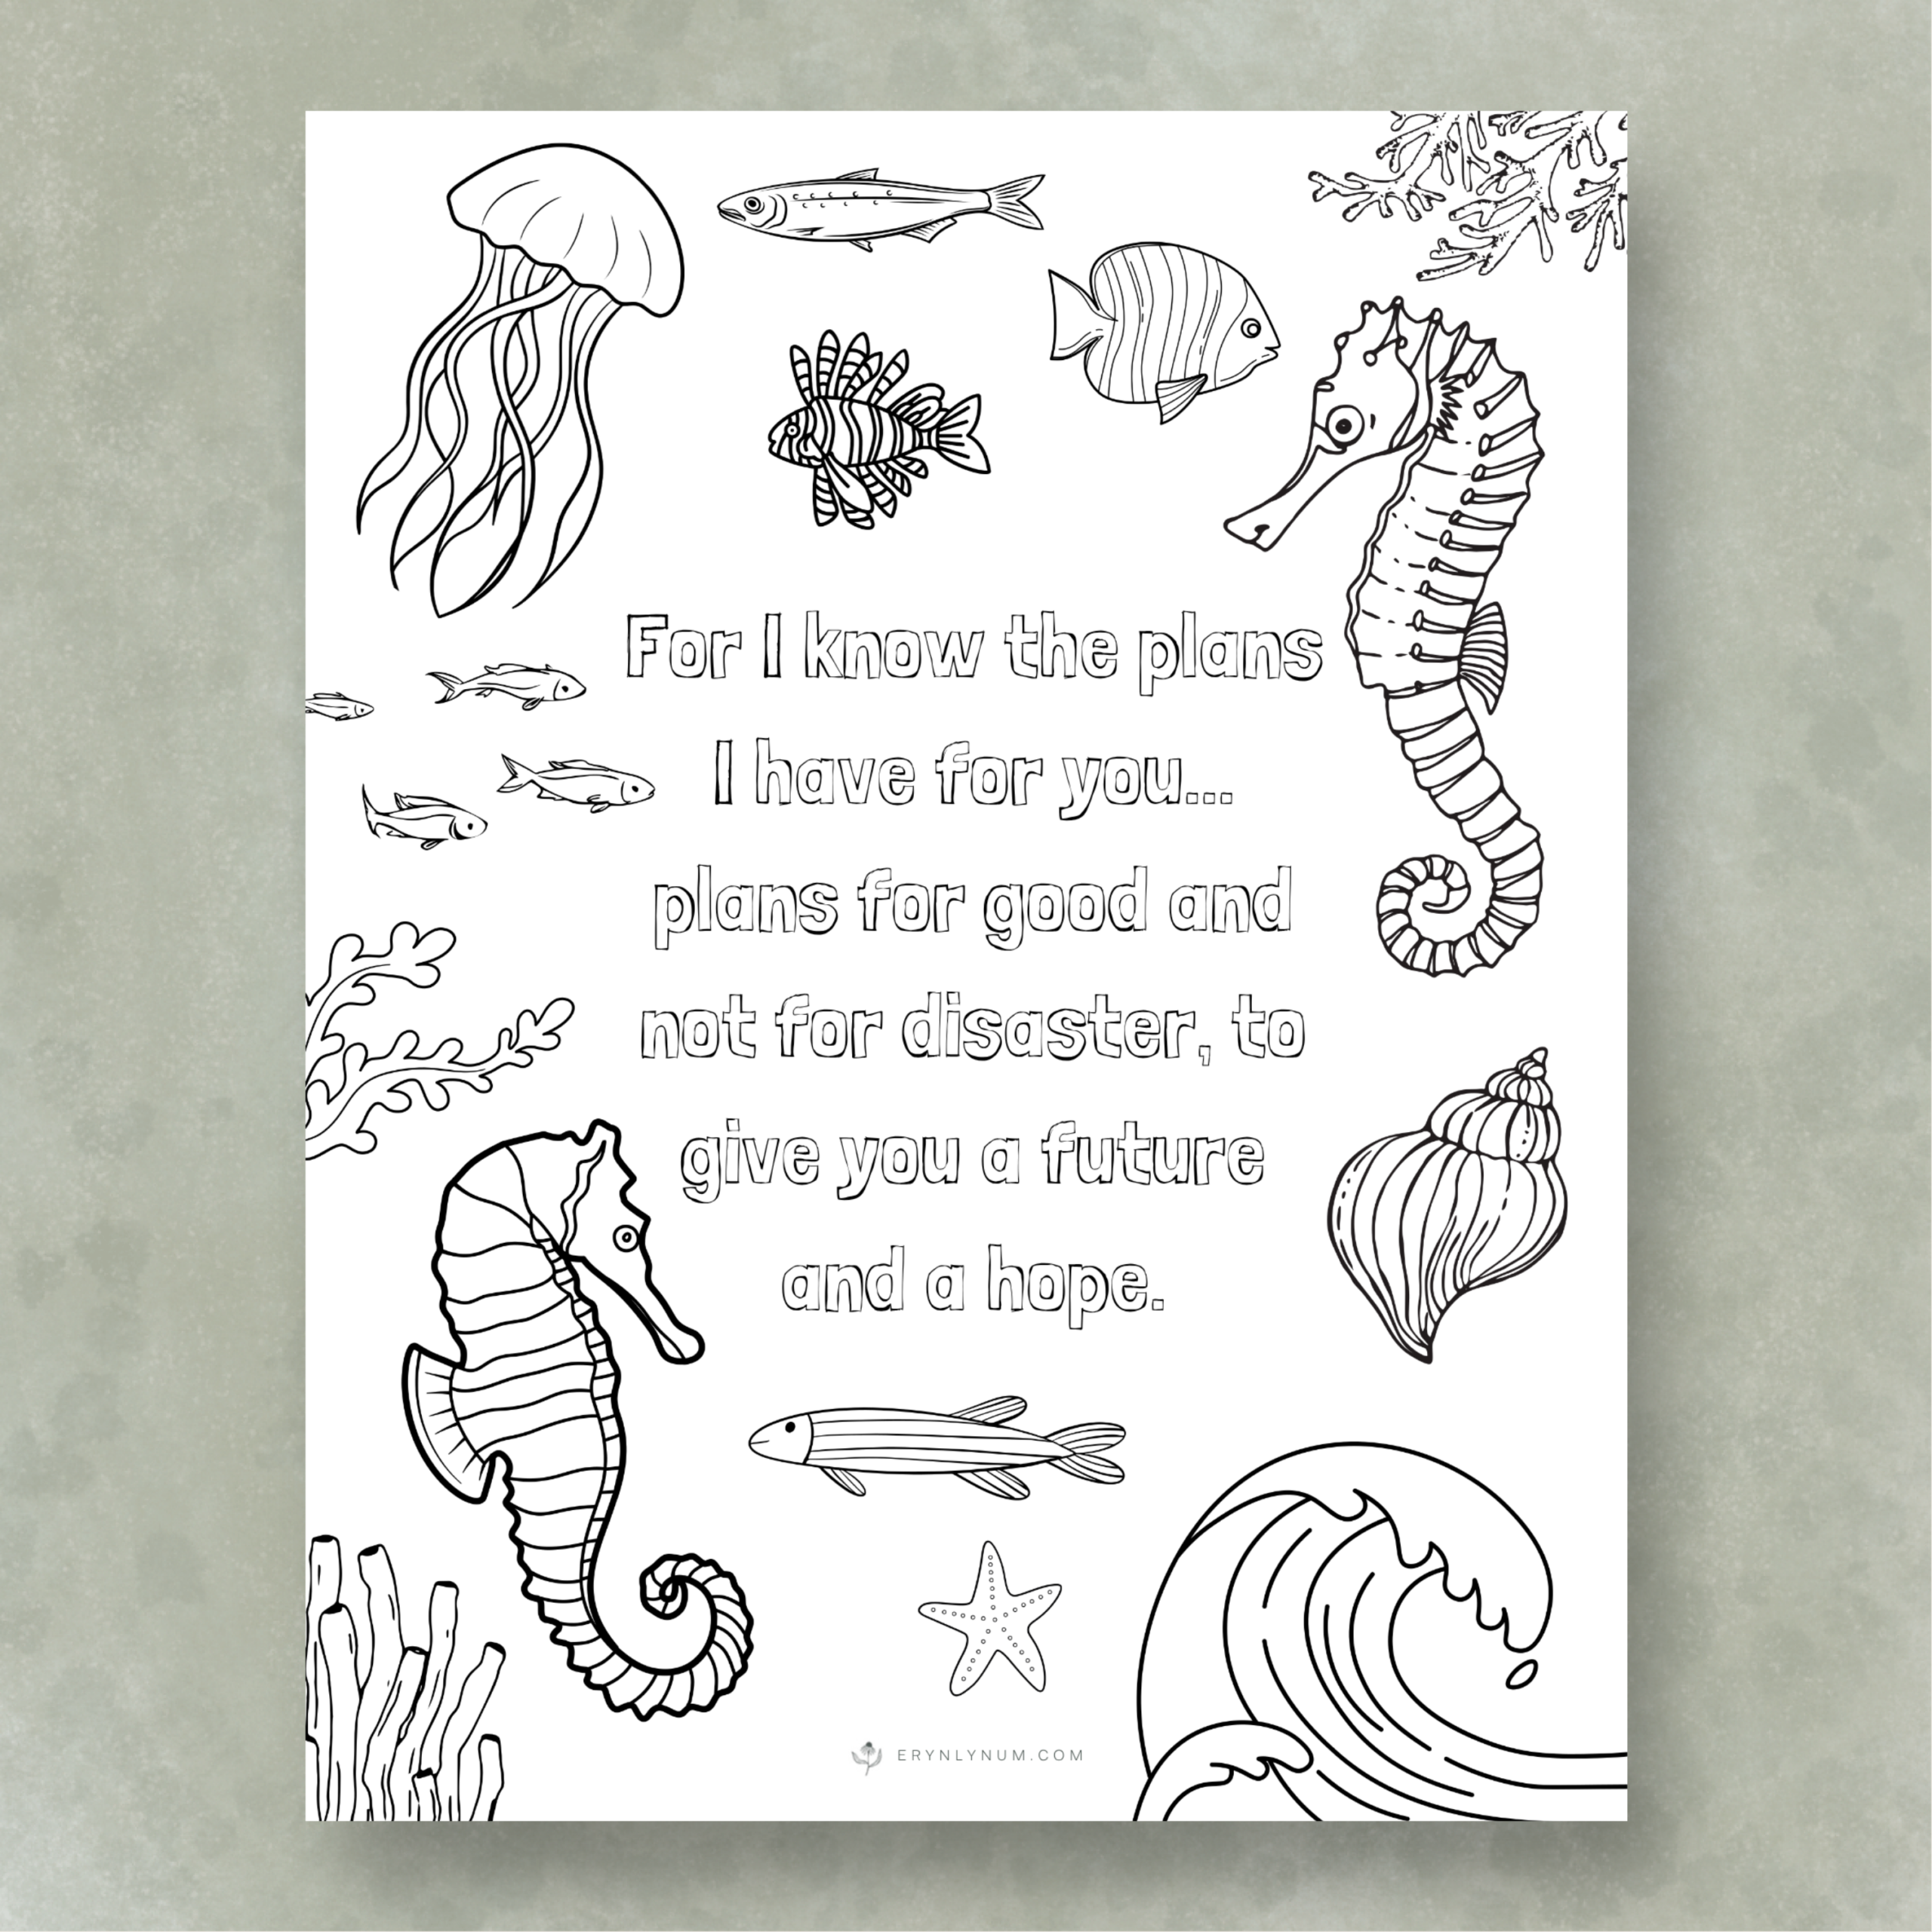 For I know the plans
I have for you...
plans for good and
not for disaster, to
give you a future
and a hope.
ERYNLYNUM.COM